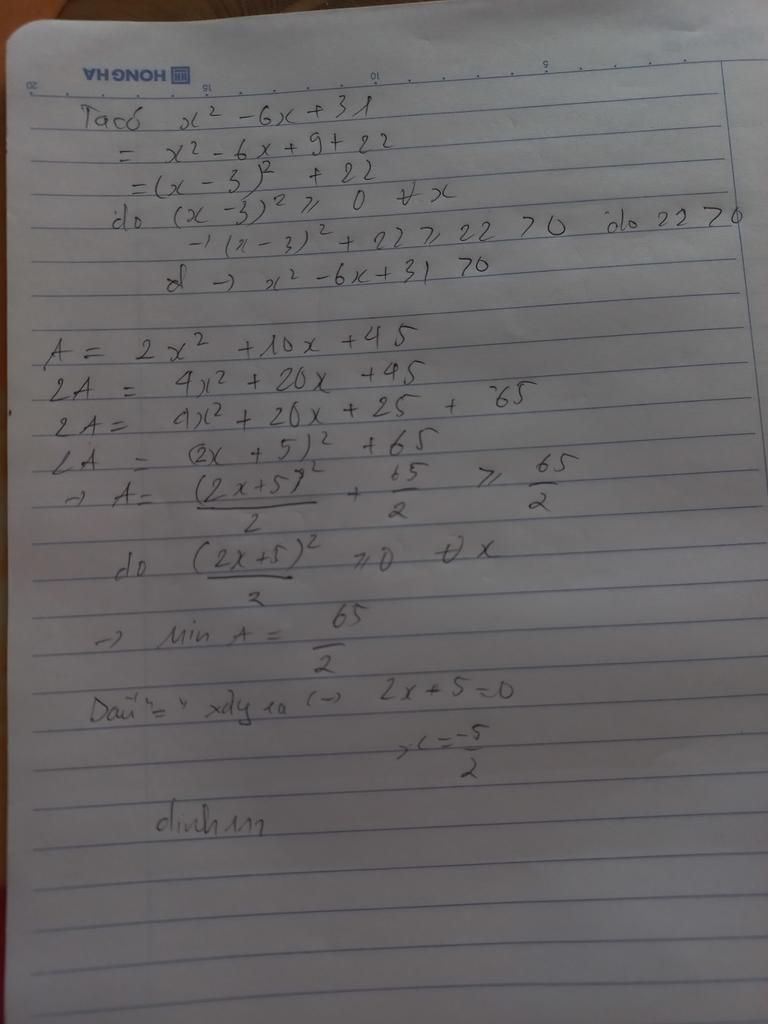 HONG HA
20 15 10 5
Ta có x² - 6x + 31
= x² - 6x + 9 + 22
= (x - 3)² + 22
do (x - 3)² ≥ 0 ∀ x
→ (x - 3)² + 22 ≥ 22 > 0 do 22 > 0
→ x² - 6x + 31 > 0
A = 2x² + 10x + 45
2A = 4x² + 20x + 95
2A = 4x² + 20x + 25 + 65
2A = (2x + 5)² + 65
→ A = (2x+5)²/2 + 65/2 ≥ 65/2
do (2x+5)²/2 ≥ 0 ∀ x
→ Min A = 65/2
Dấu "=" xảy ra (→ 2x + 5 = 0
x = -5/2